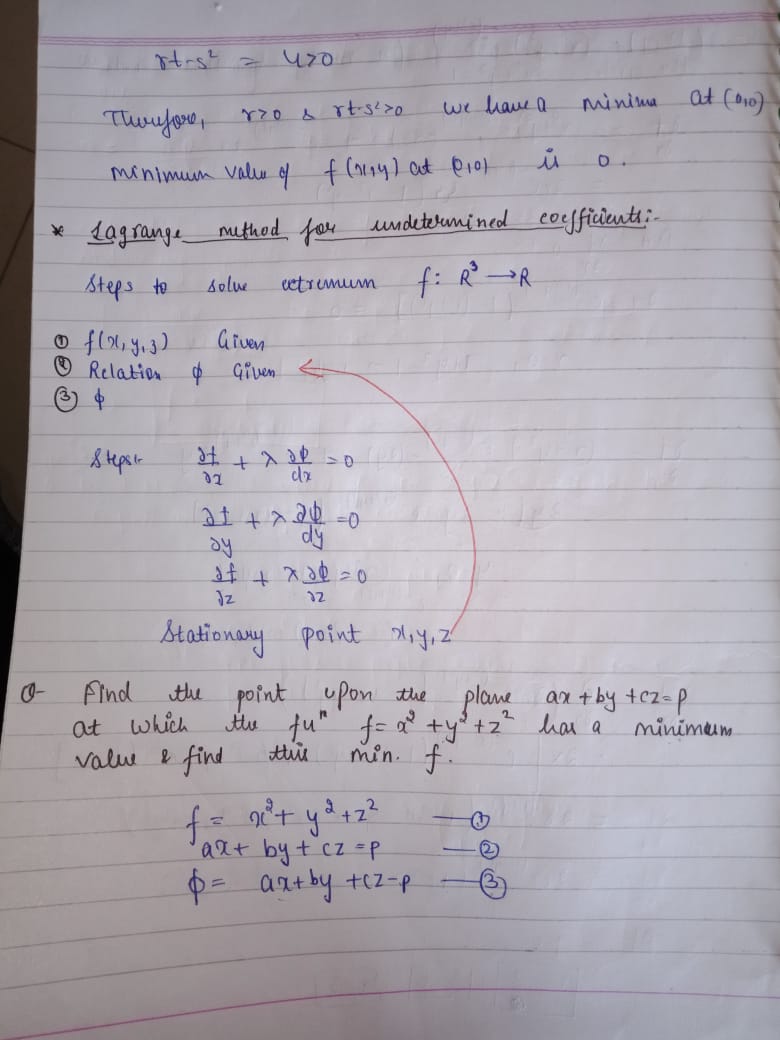 rt-s² = 4>0
Therefore, r>0 & rt-s²>0 we have a minima at (0,0)
minimum value of f(x,y) at (0,0) is 0.
* Lagrange method for undetermined coefficients:-
Steps to solve extremum f: R³ → R
① f(x,y,z) Given
② Relation ϕ Given
③ ϕ
Steps:- ∂f/∂x + λ ∂ϕ/dx = 0
∂f/∂y + λ ∂ϕ/dy = 0
∂f/∂z + λ ∂ϕ/∂z = 0
Stationary point x,y,z
Q- Find the point upon the plane ax+by+cz=p
at which the fuⁿ f=x²+y²+z² has a minimum
value & find this min. f.
f = x²+y²+z² —①
ax+by+cz=p —②
ϕ= ax+by+cz-p —③